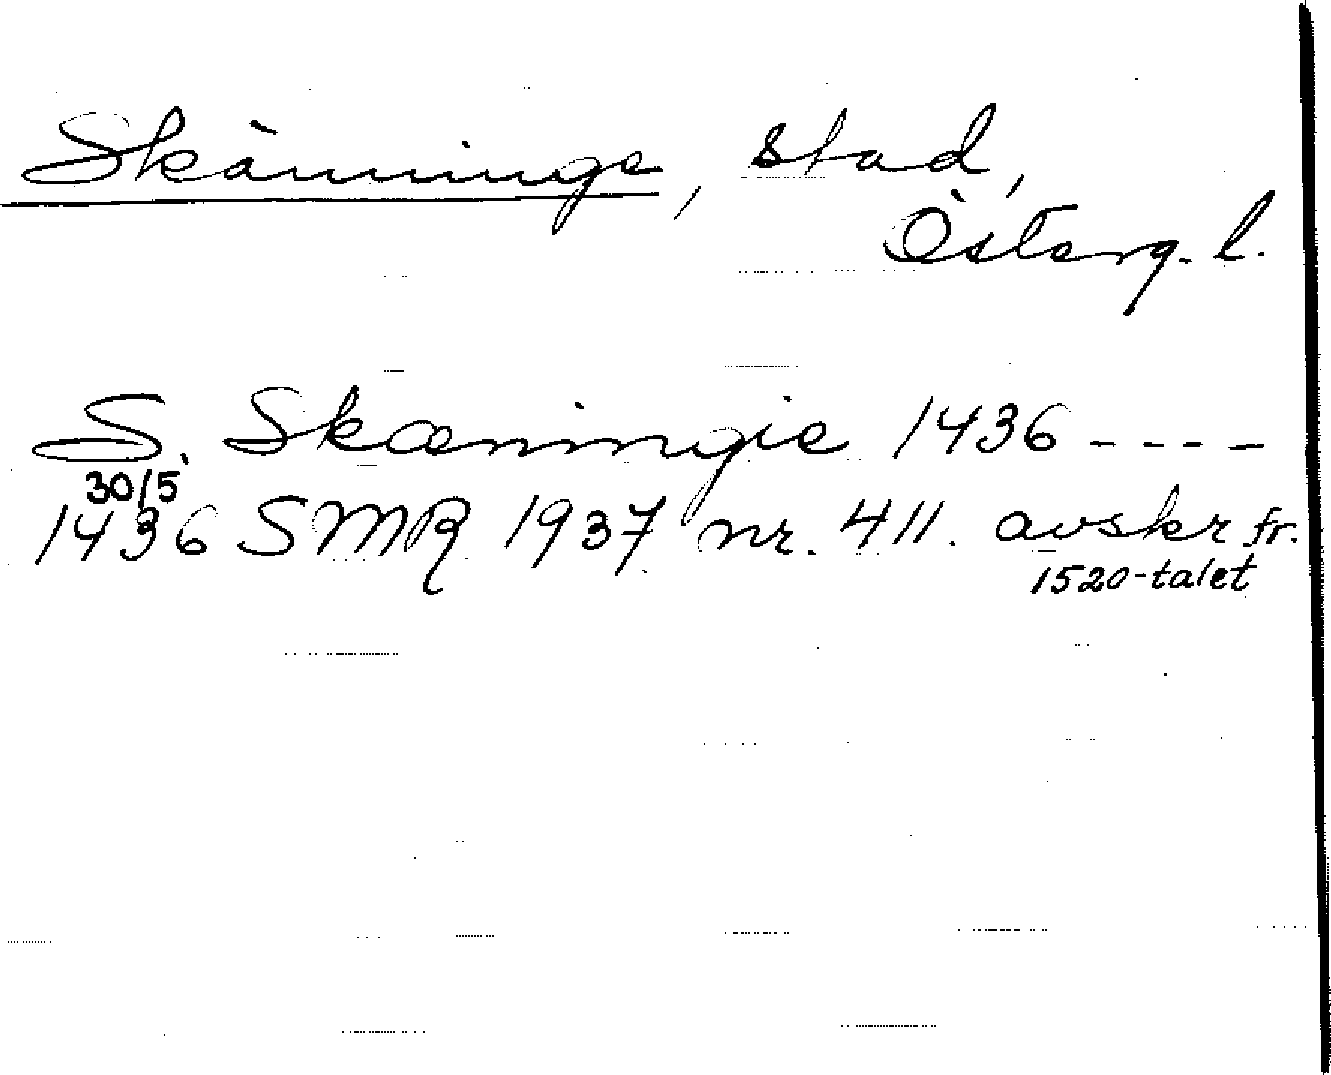 Skänninge, stad,
Österg. l.
S. Skæningie 1436 - - - -
30/5
1436 SMR 1937 nr. 411. avskr fr.
1520-talet